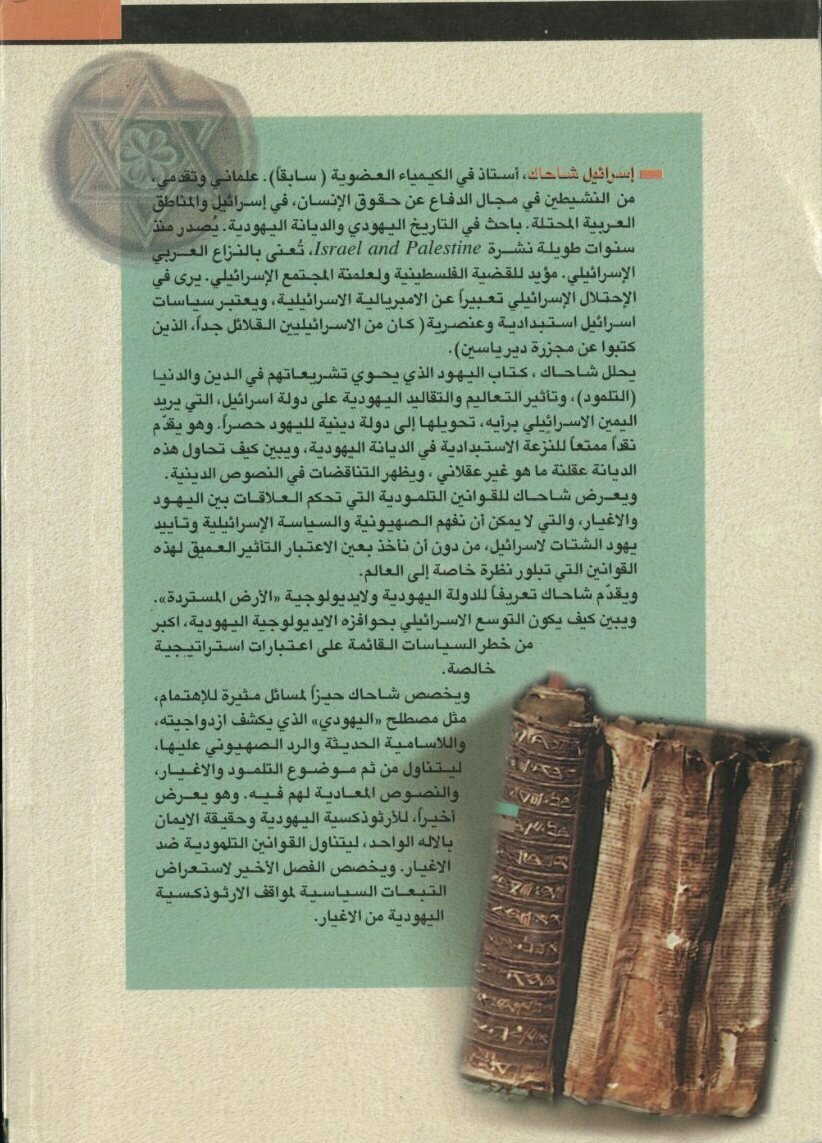 إسرائيل شاحاك، أستاذ في الكيمياء العضوية ( سابقاً). علماني وتقدمي،
من النشيطين في مجال الدفاع عن حقوق الإنسان، في إسرائيل والمناطق
العربية المحتلة. باحث في التاريخ اليهودي والديانة اليهودية. يُصدر منذ
سنوات طويلة نشرة Israel and Palestine، تُعنى بالنزاع العربي
الإسرائيلي. مؤيد للقضية الفلسطينية ولعلمنة المجتمع الإسرائيلي. يرى في
الإحتلال الإسرائيلي تعبيراً عن الامبريالية الاسرائيلية، ويعتبر سياسات
اسرائيل استبدادية وعنصرية( كان من الاسرائيليين القلائل جداً، الذين
كتبوا عن مجزرة دير ياسين).
يحلل شاحاك ، كتاب اليهود الذي يحوي تشريعاتهم في الدين والدنيا
(التلمود)، وتأثير التعاليم والتقاليد اليهودية على دولة اسرائيل، التي يريد
اليمين الاسرائيلي برأيه، تحويلها إلى دولة دينية لليهود حصراً. وهو يقدّم
نقداً ممتعاً للنزعة الاستبدادية في الديانة اليهودية، ويبين كيف تحاول هذه
الديانة عقلنة ما هو غير عقلاني ، ويظهر التناقضات في النصوص الدينية.
ويعرض شاحاك للقوانين التلمودية التي تحكم العلاقات بين اليهود
والاغيار، والتي لا يمكن أن نفهم الصهيونية والسياسة الإسرائيلية وتأييد
يهود الشتات لاسرائيل، من دون أن نأخذ بعين الاعتبار التأثير العميق لهذه
القوانين التي تبلور نظرة خاصة إلى العالم.
ويقدّم شاحاك تعريفاً للدولة اليهودية ولايديولوجية «الأرض المستردة».
ويبين كيف يكون التوسع الاسرائيلي بحوافزه الايديولوجية اليهودية، اكبر
من خطر السياسات القائمة على اعتبارات استراتيجية
خالصة.
ويخصص شاحاك حيزاً لمسائل مثيرة للإهتمام،
مثل مصطلح «اليهودي» الذي يكشف ازدواجيته،
واللاسامية الحديثة والرد الصهيوني عليها،
ليتناول من ثم موضوع التلمود والاغيار،
والنصوص المعادية لهم فيه. وهو يعرض
أخيراً، للأرثوذكسية اليهودية وحقيقة الايمان
بالاله الواحد، ليتناول القوانين التلمودية ضد
الاغيار. ويخصص الفصل الأخير لاستعراض
التبعات السياسية لمواقف الارثوذكسية
اليهودية من الاغيار.